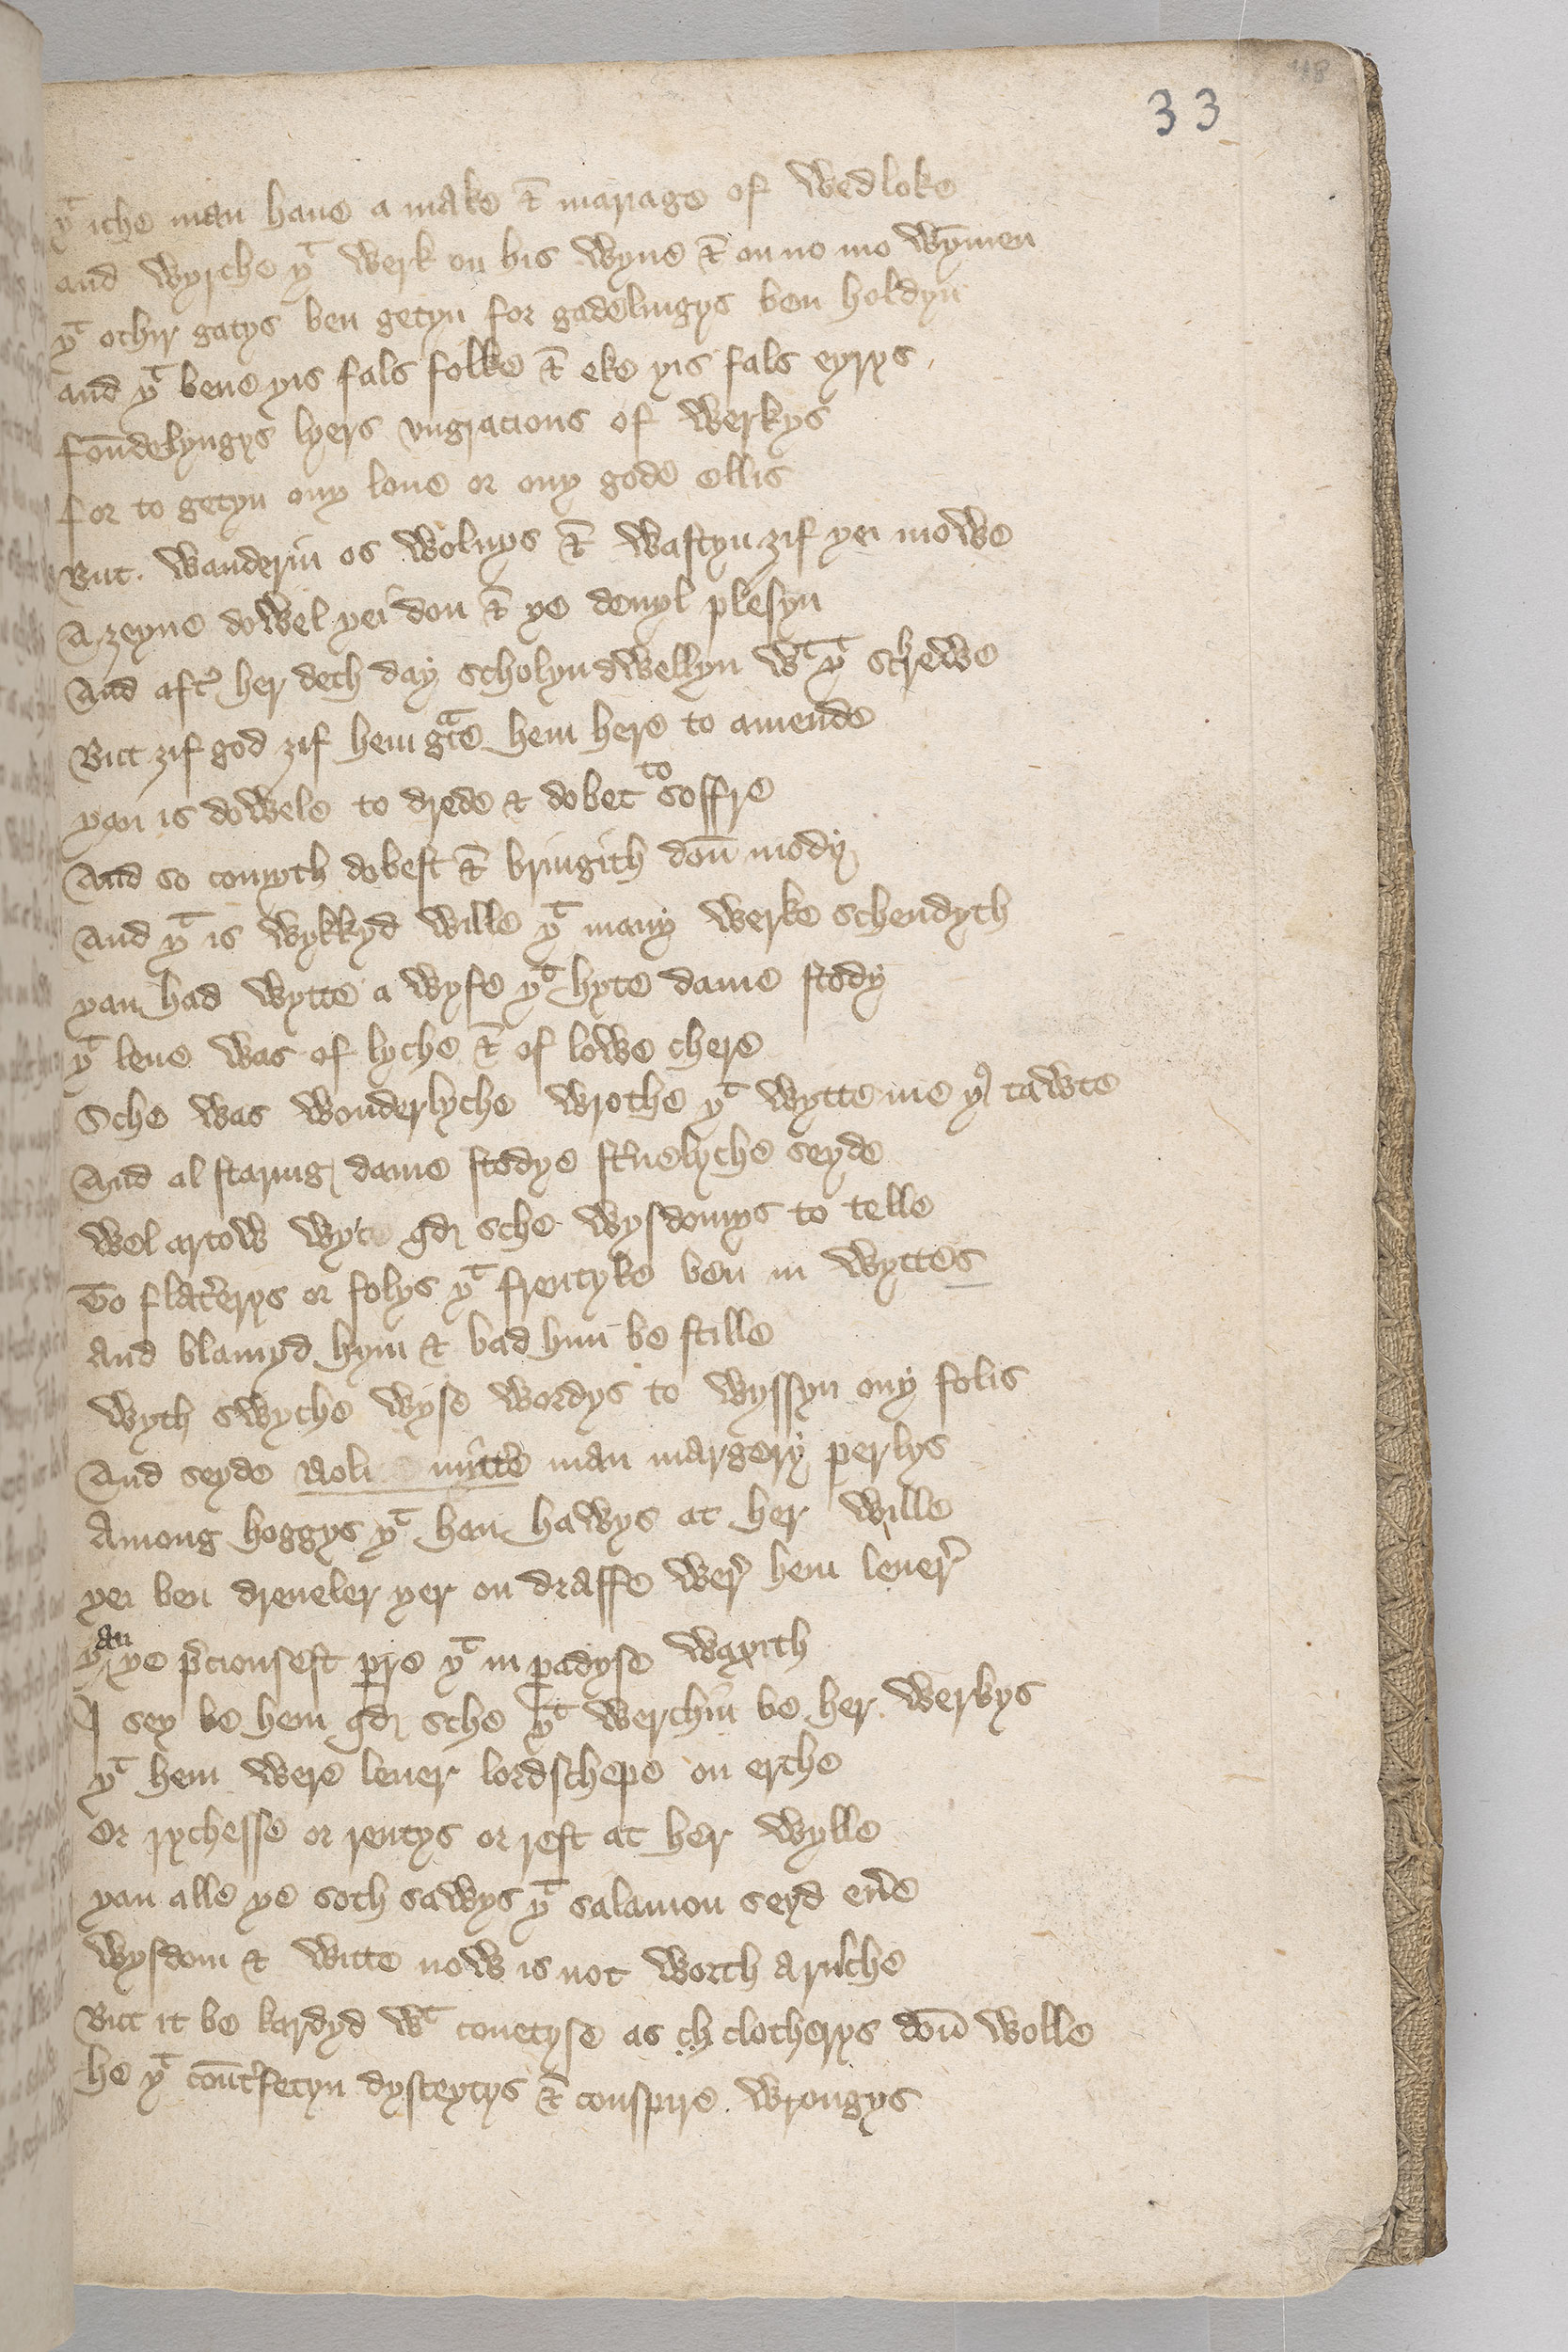 33
48
yͭ iche man haue a make & mariage of wedloke
and wyrche yͭ werk on his wyue & on no mo wȳmen
yͭ othir gatys ben getyn for gadelingys ben holdyn
and yͭ bene yis fals folke & eke yis fals eyrys
foūdelyngys lyers vngracious of werkys
for to getyn ony loue or ony gode ellis
But . wanderin os woluys & wastyn zif yei mowe
A zeyne dowel yei don & ye deuyl plesyn
And aftˀ her deth day scholyn dwellyn wͭ yͭ schrewe
But zif god zif hem gͣce hem here to amende
yan is dowele to drede & dobet to soffre
And so comyth dobest & bringith doū mody
And yͭ is wykkyd wille yͭ many werke schendyth
yan had wytte a wyfe yͭ hyte dame stody
yͭ lene was of lyche & of lowe chere
Sche was wonderlyche wrothe yͭ wytte me yˀ tawte
And al staring dame stodye stˀnelyche seyde
wel artow wyce qd sche wysdomys to telle
To flatˀerys or folys yͭ frentyke ben in wyttes
And blamyd hym & bad him be stille
wyth swyche wyse wordys to wyssyn ony folis
And seyde noli mittˀe man margery perlys
Among hoggys yͭ han hawys at her wille
yei ben dreueler yer on draffe werˀ hem leuerˀ
yan ye pˀciousest pre yͭ in padyse waxith
I sey be hem qd sche yͭ werchin be her werkys
yͭ hem were leuer lordschepe on erthe
Or rychesse or rentys or rest at her wylle
yan alle ye soth sawys yͭ salamon seyd euˀe
wysdom & witte now is not worth a rusche
But it be kardyd wͭ couetyse as ch clotherys doū wolle
he yͭ coūtˀfetyn dysceytys & conspire wrongys